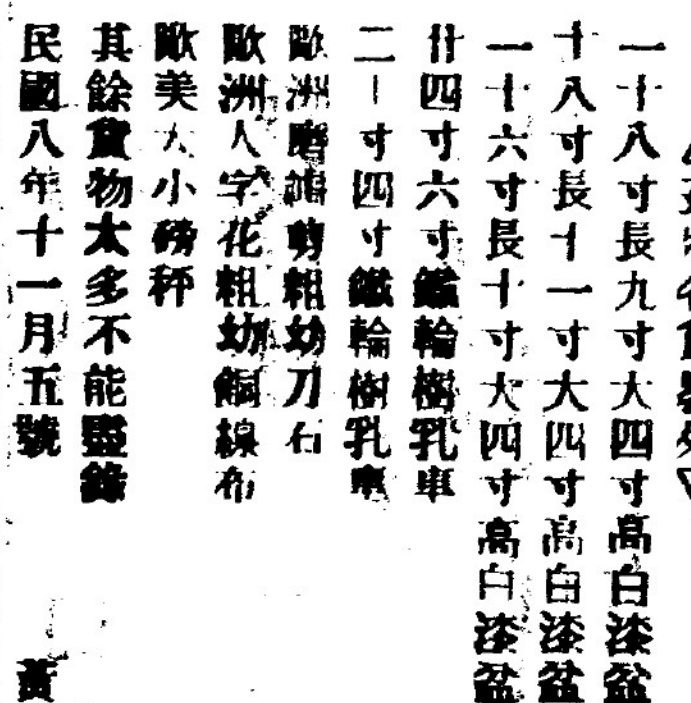 一十八寸長九寸大四寸高白漆盆
十八寸長十一寸大四寸高白漆盆
一十六寸長十寸大四寸高白漆盆
廿四寸六寸鐵輪樹乳車
二十寸四寸鐵輪樹乳車
歐洲磨鐮剪粗幼刀石
歐洲人字花粗幼銅線布
歐美大小磅秤
其餘貨物太多不能盡錄
民國八年十一月五號
黃